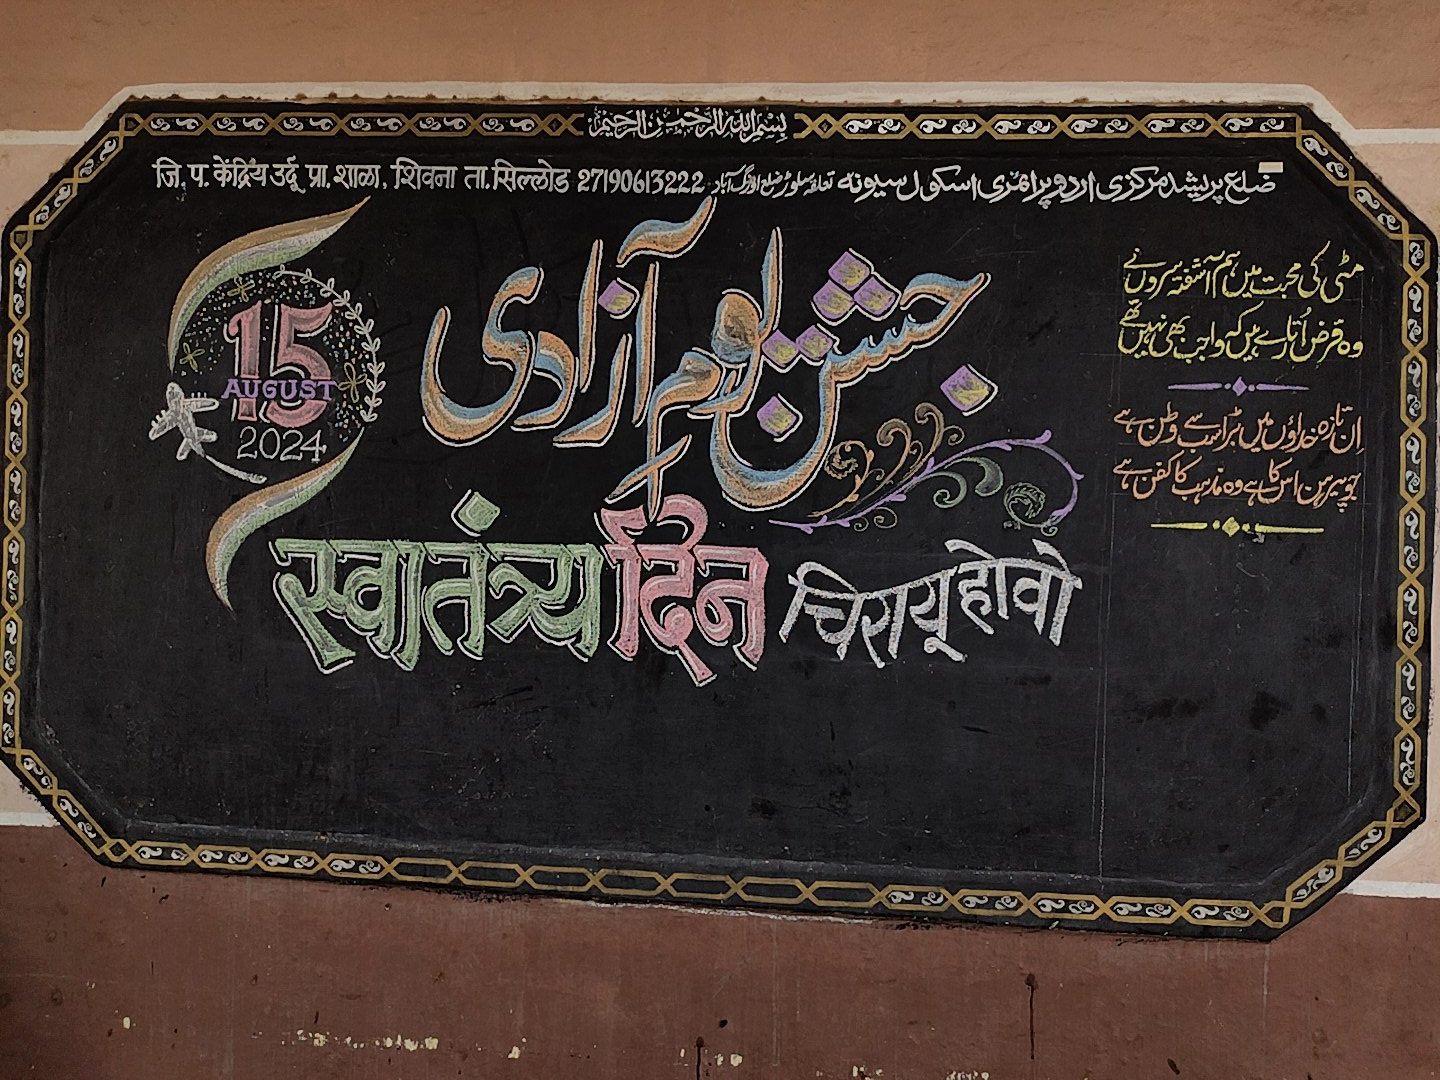 بسم الله الرحمن الرحيم
जि. प. केंद्रिय उर्दू प्रा. शाळा, शिवना ता. सिल्लोड 27190613222
ضلع پریشد مرکزی اردو پرائمری اسکول سیونہ تعلقہ سلوڑ ضلع اورنگ آباد
15
AUGUST
2024
جشن یوم آزادی
स्वातंत्र्य दिन चिरायू होवो
مٹی کی محبت میں ہم آشفتہ سروں نے
وہ قرض اُتارے ہیں کہ واجب بھی نہیں تھے
اِن تازہ خداؤں میں بڑا سب سے وطن ہے
جو پیرہن اس کا ہے وہ مذہب کا کفن ہے